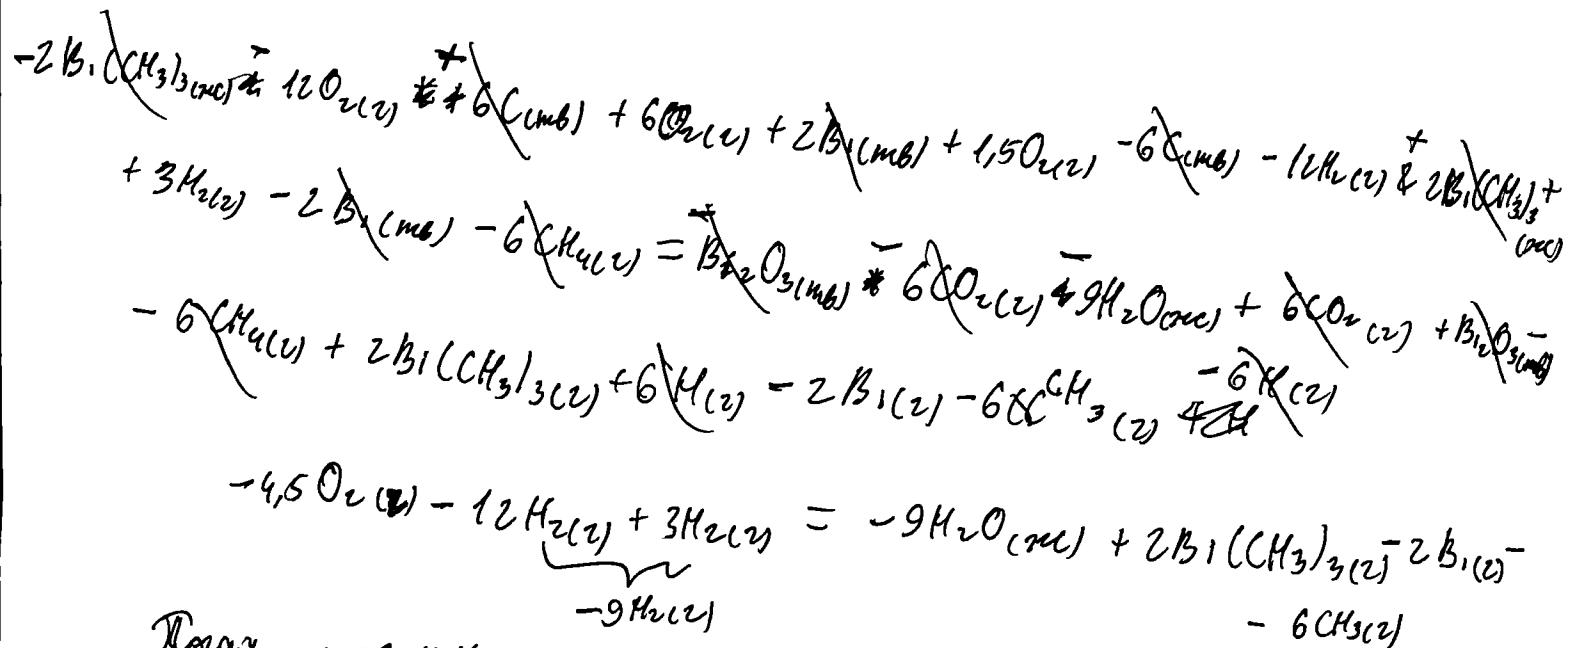 -2Bi(CH₃)₃(ж) - 12O₂(г) + 6C(тв) + 6O₂(г) + 2Bi(тв) + 1,5O₂(г) - 6C(тв) - 12H₂(г) + 2Bi(CH₃)₃(ж) +
+ 3H₂(г) - 2Bi(тв) - 6CH₄(г) = -Bi₂O₃(тв) - 6CO₂(г) - 9H₂O(ж) + 6CO₂(г) + Bi₂O₃(тв) -
- 6CH₄(г) + 2Bi(CH₃)₃(г) + 6H(г) - 2Bi(г) - 6CH₃(г) - 6H(г)
-4,5O₂(г) - 12H₂(г) + 3H₂(г) = -9H₂O(ж) + 2Bi(CH₃)₃(г) - 2Bi(г) -
-9H₂(г)
- 6CH₃(г)